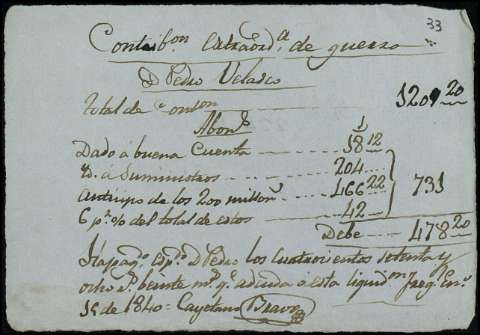 33
Contribon. Extraorda. de guerra
D Pedro Velasco
total de Conton 1209 20
Abons.
Dado á buena Cuenta 18 12
Yd. á Suministros 204
Anticipo de los 200 millon 466 22 731
6 pr. % del total de estos 42
Debe 478 20
pago. D. Pedro los Cuatrocientos Setenta y
ocho rs. beinte ms. qe. adeuda a esta liquidn. Freg. En.
15 de 1840 - Cayetano Bravo